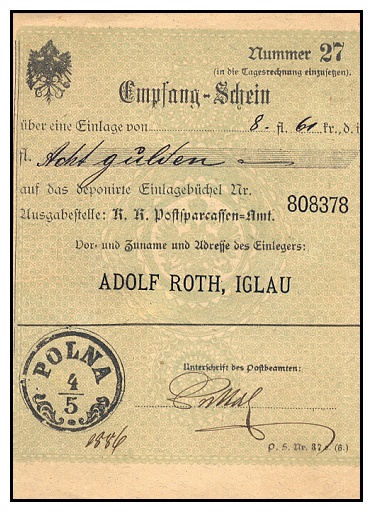 Nummer 27
(in die Tagesrechnung einzusetzen).
Empfang-Schein
über eine Einlage von 8. fl. 60 kr., d. i
fl. Acht gulden
auf das deponirte Einlagebüchel Nr. 808378
Ausgabestelle: K. K. Postsparcassen-Amt.
Vor- und Zuname und Adresse des Einlegers:
ADOLF ROTH, IGLAU
Unterschrift des Postbeamten:
POLNA
4/5
1886
P. S. Nr. 37